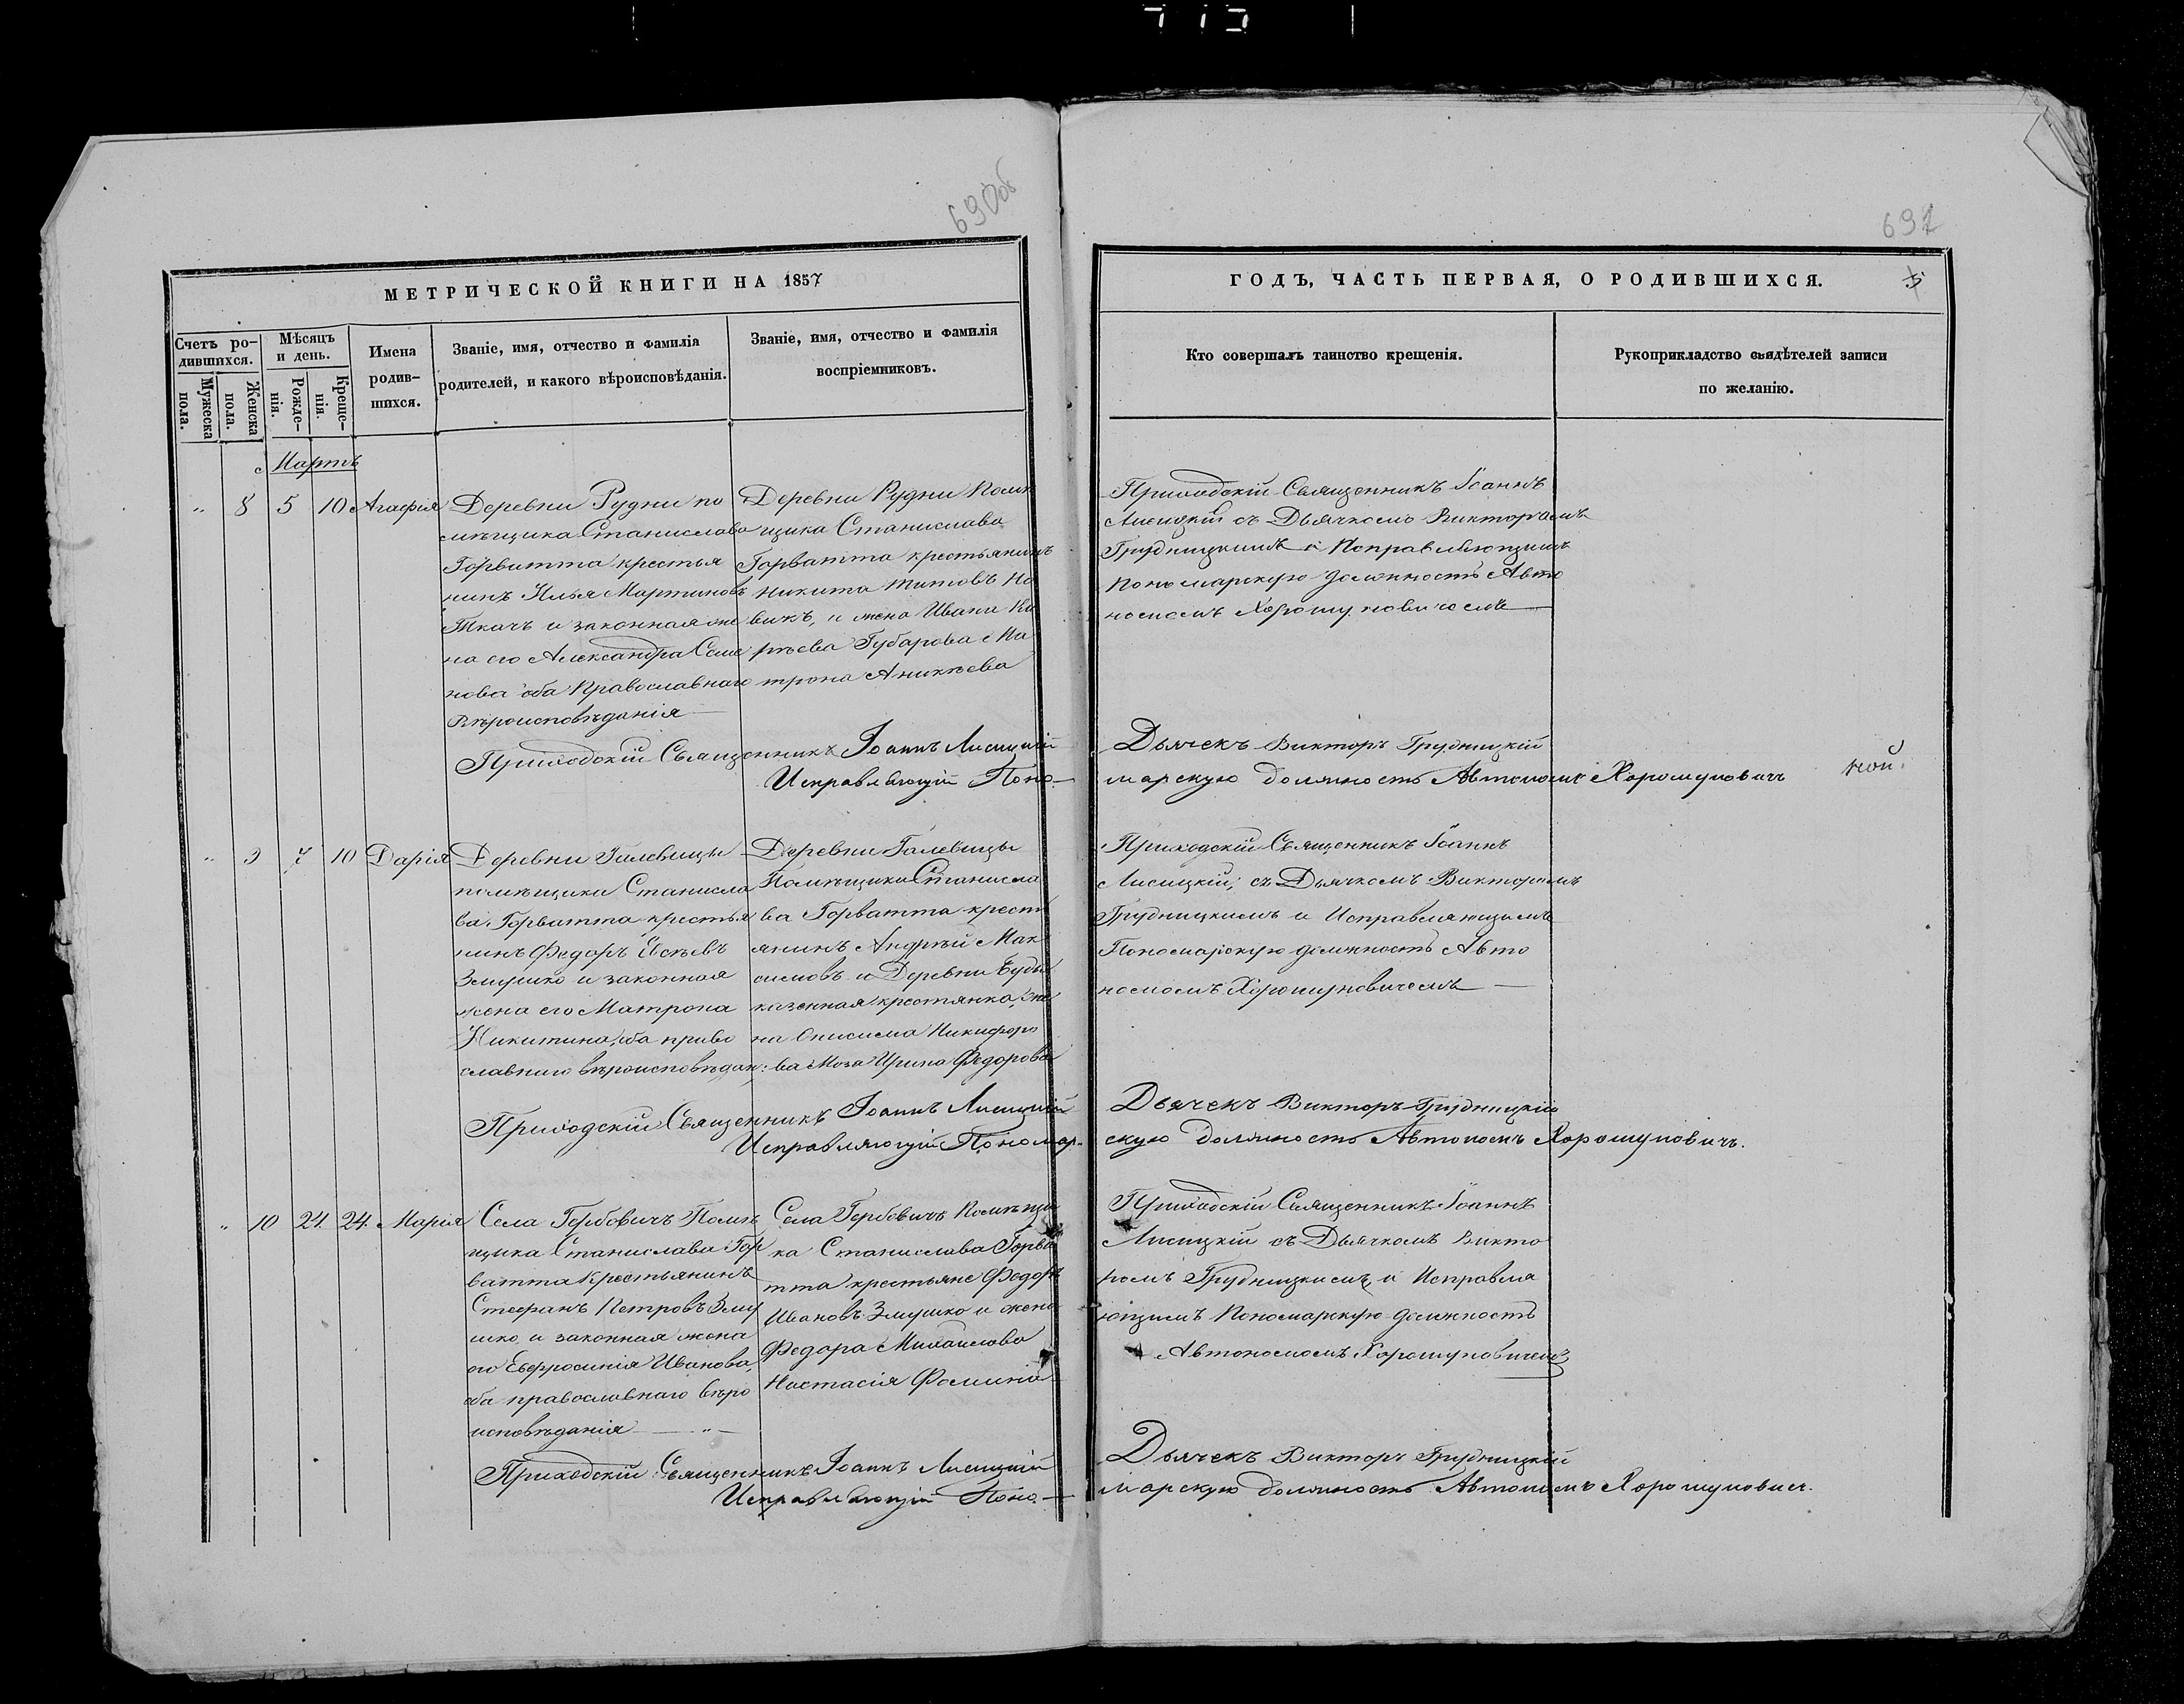 690об
МЕТРИЧЕСКОЙ КНИГИ НА 1857
Счетъ ро-
дившихся.
Мужеска
пола.
Женска
пола.
Мѣсяцъ
и день.
Рожде-
нія.
Креще-
нія.
Имена
родив-
шихся.
Званіе, имя, отчество и фамилія
родителей, и какого вѣроисповѣданія.
Званіе, имя, отчество и фамилія
воспріемниковъ.
Мартъ
" 8 5 10 Агафія
Деревни Рудни по
мѣщика Станислава
Горватта крестья
нинъ Илья Мартиновъ
Ткачъ и законная же
на его Александра Семе
нова оба Православнаго
Вѣроисповѣданія
Деревни Рудни Помѣ
щика Станислава
Горватта крестьянинъ
Никита Титовъ
викъ, и жена Ивана
Губарова Ма
трона Аникѣева
Приходскій Священникъ Іоаннъ Лисицкій
Исправляющій Поно-
" 9 7 10 Дарія
Деревни Галевицы
помѣщика Станисла
ва Горватта крестья
нинъ Федоръ
Змушко и законная
жена его Матрона
Никитина, оба право
славнаго вѣроисповѣдан:
Деревни Галевицы
Помѣщика Станисла
ва Горватта крестъ
янинъ Андрѣй Мак
симовъ и Деревни Буды
казенная крестянка, же
на Онисима Никифоро
ва Моза Ирина Федорова
Приходскій Священникъ Іоаннъ Лисицкій
Исправляющій Пономар-
" 10 24. 24. Марія
Села Горбовичъ Помѣ
щика Станислава Гор
ватта Крестьянинъ
Стефанъ Петровъ Зму
шко и законная жена
его Евфросинія Иванова,
оба православнаго вѣро
исповѣданія — " —
Села Горбовичъ Помѣщи
ка Станислава Горва
тта крестьяне Федоръ
Ивановъ Змушко и жена
Федора Михайлова
Настасія Фомина
Приходскій Священникъ Іоаннъ Лисицкій
Исправляющій Поно-
691
ГОДЪ, ЧАСТЬ ПЕРВАЯ, О РОДИВШИХСЯ.
5
Кто совершалъ таинство крещенія.
Рукоприкладство свидѣтелей записи
по желанію.
Приходскій Священникъ Іоаннъ
Лисицкій съ Дьячкомъ Викторомъ
Грудницкимъ и Исправляющимъ
Пономарскую должность Авто
номомъ Хорошуновичемъ
Дьячекъ Викторъ Грудницкій
марскую должность Автономъ Хорошуновичъ
Приходскій Священникъ Іоаннъ
Лисицкій, съ Дьячкомъ Викторомъ
Грудницкимъ и Исправляющимъ
Пономарскую должность Авто
номомъ Хорошуновичемъ
Дьячекъ Викторъ Грудницкій
скую должность Автономъ Хорошуновичъ.
Приходскій Священникъ Іоаннъ
Лисицкій съ Дьячкомъ Викто
ромъ Грудницкимъ и Исправля
ющимъ Пономарскую должность
Автономомъ Хорошуновичемъ
Дьячекъ Викторъ Грудницкій
марскую должность Автономъ Хорошуновичъ.